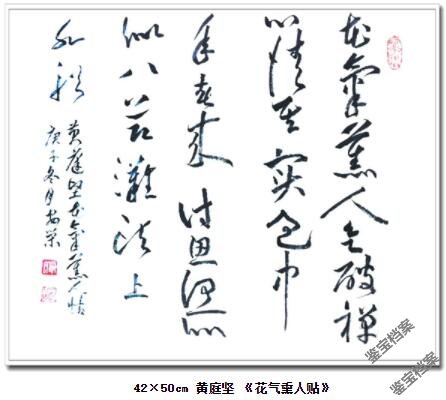 花氣薰人欲破禅
心情其实过中
年春来诗思何所
似八节滩头上
水船
黄庭坚花氣薰人帖
庚子冬月
鉴宝档案
42×50cm 黄庭坚 《花气熏人贴》